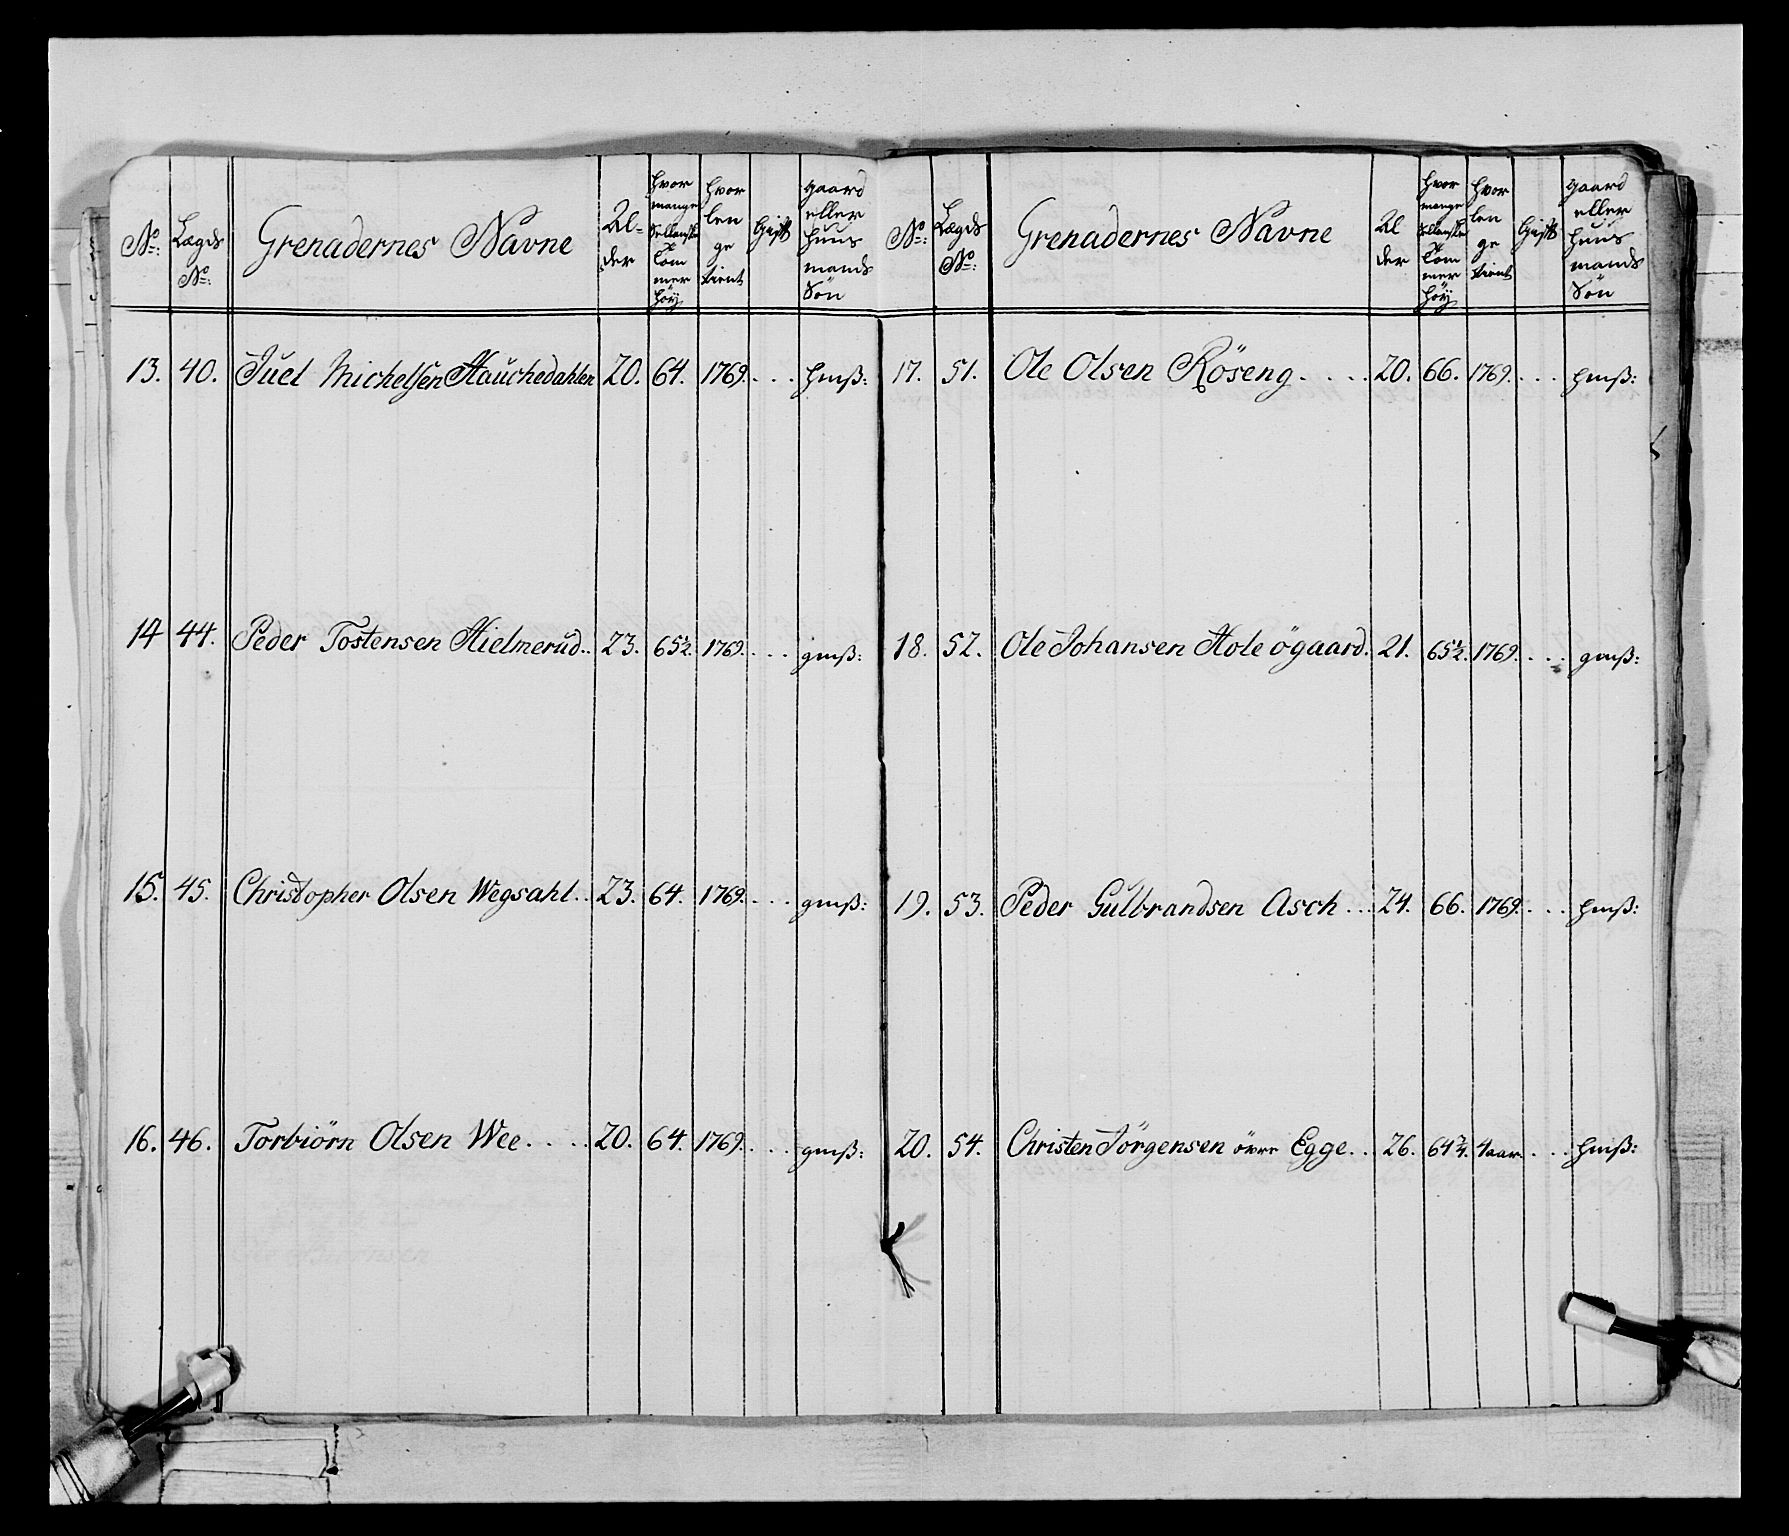 No: Lægds No: Grenadernes Navne Al= der hvor mange Sellanske Tom mer høÿ hvor len ge tient Gift gaard eller huus mands Søn
13. 40. Juel Michelsen Hauchedahlen 20. 64. 1769. . . . hmß:
14 44. Peder Tostensen Hielmerud . . 23. 65½. 1769. . . . gmß:
15. 45. Christopher Olsen Wegsahl . . 23. 64. 1769. . . . gmß:
16. 46. Torbiörn Olsen Wee . . . . 20. 64. 1769. . . . gmß:
No: Lægds No: Grenadernes Navne Al der hvor mange Sellanske Tom mer høÿ hvor len ge tient Gift gaard eller huus mands Søn
17. 51. Ole Olsen Röseng . . . . 20. 66. 1769. . . . hmß:
18. 52. Ole Johansen Hole ögaard. 21. 65½. 1769. . . . gmß:
19. 53. Peder Gulbrandsen Asch . . . 24. 66. 1769. . . . hmß:
20. 54. Christen Jörgensen övre Egge . . 26. 64¾. 4aar. . . . hmß: